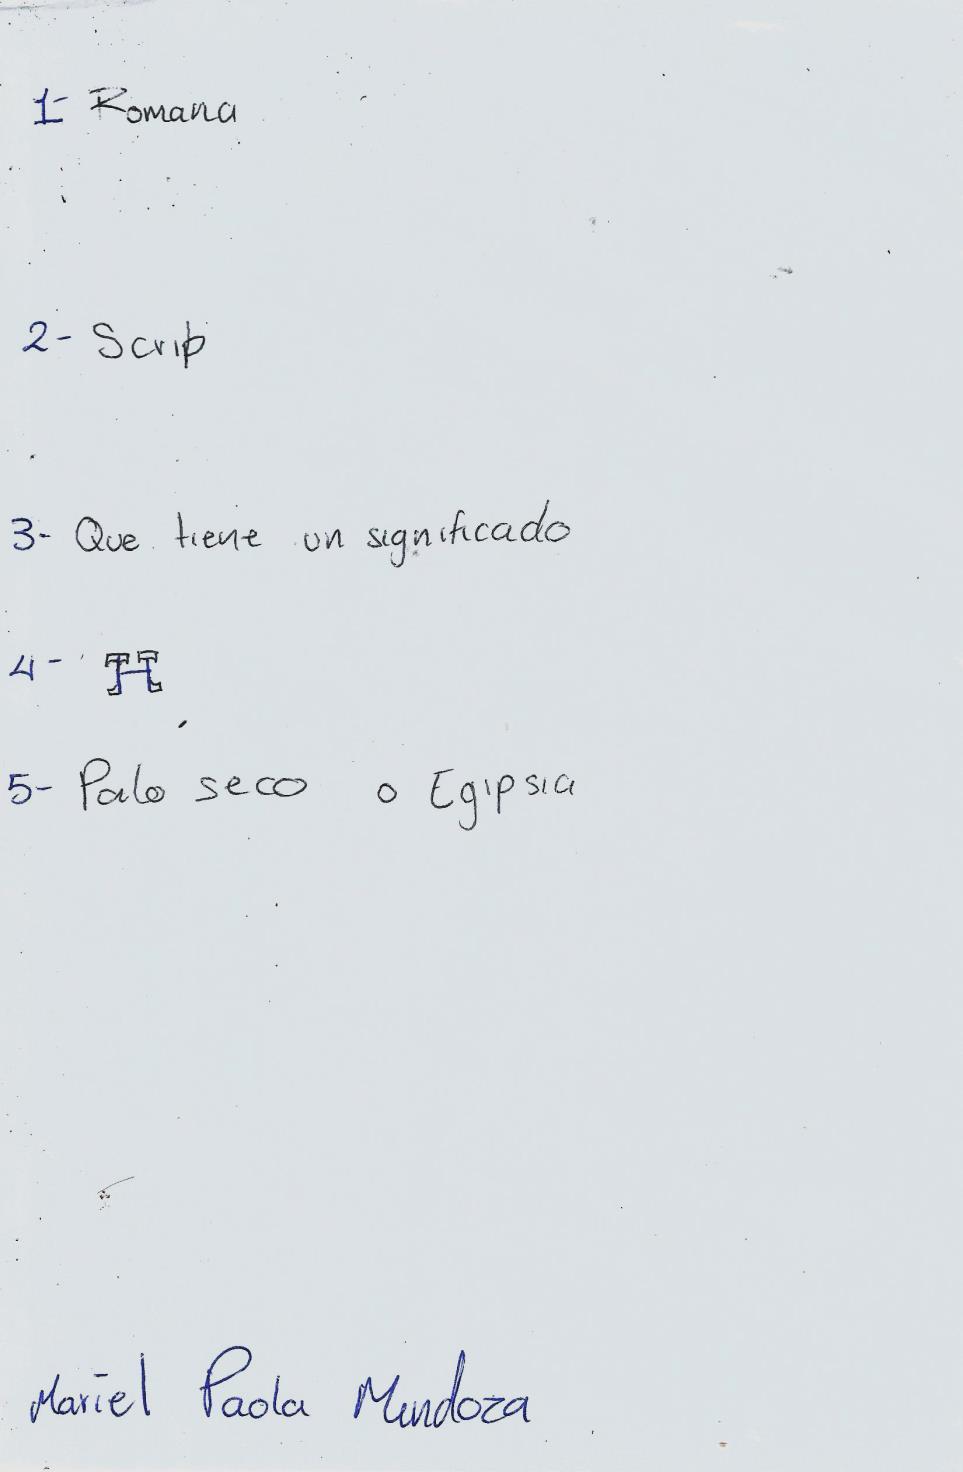 1- Romana
2- Scrip
3- Que tiene un significado
4- H
5- Palo seco o Egipsia
Mariel Paola Mendoza